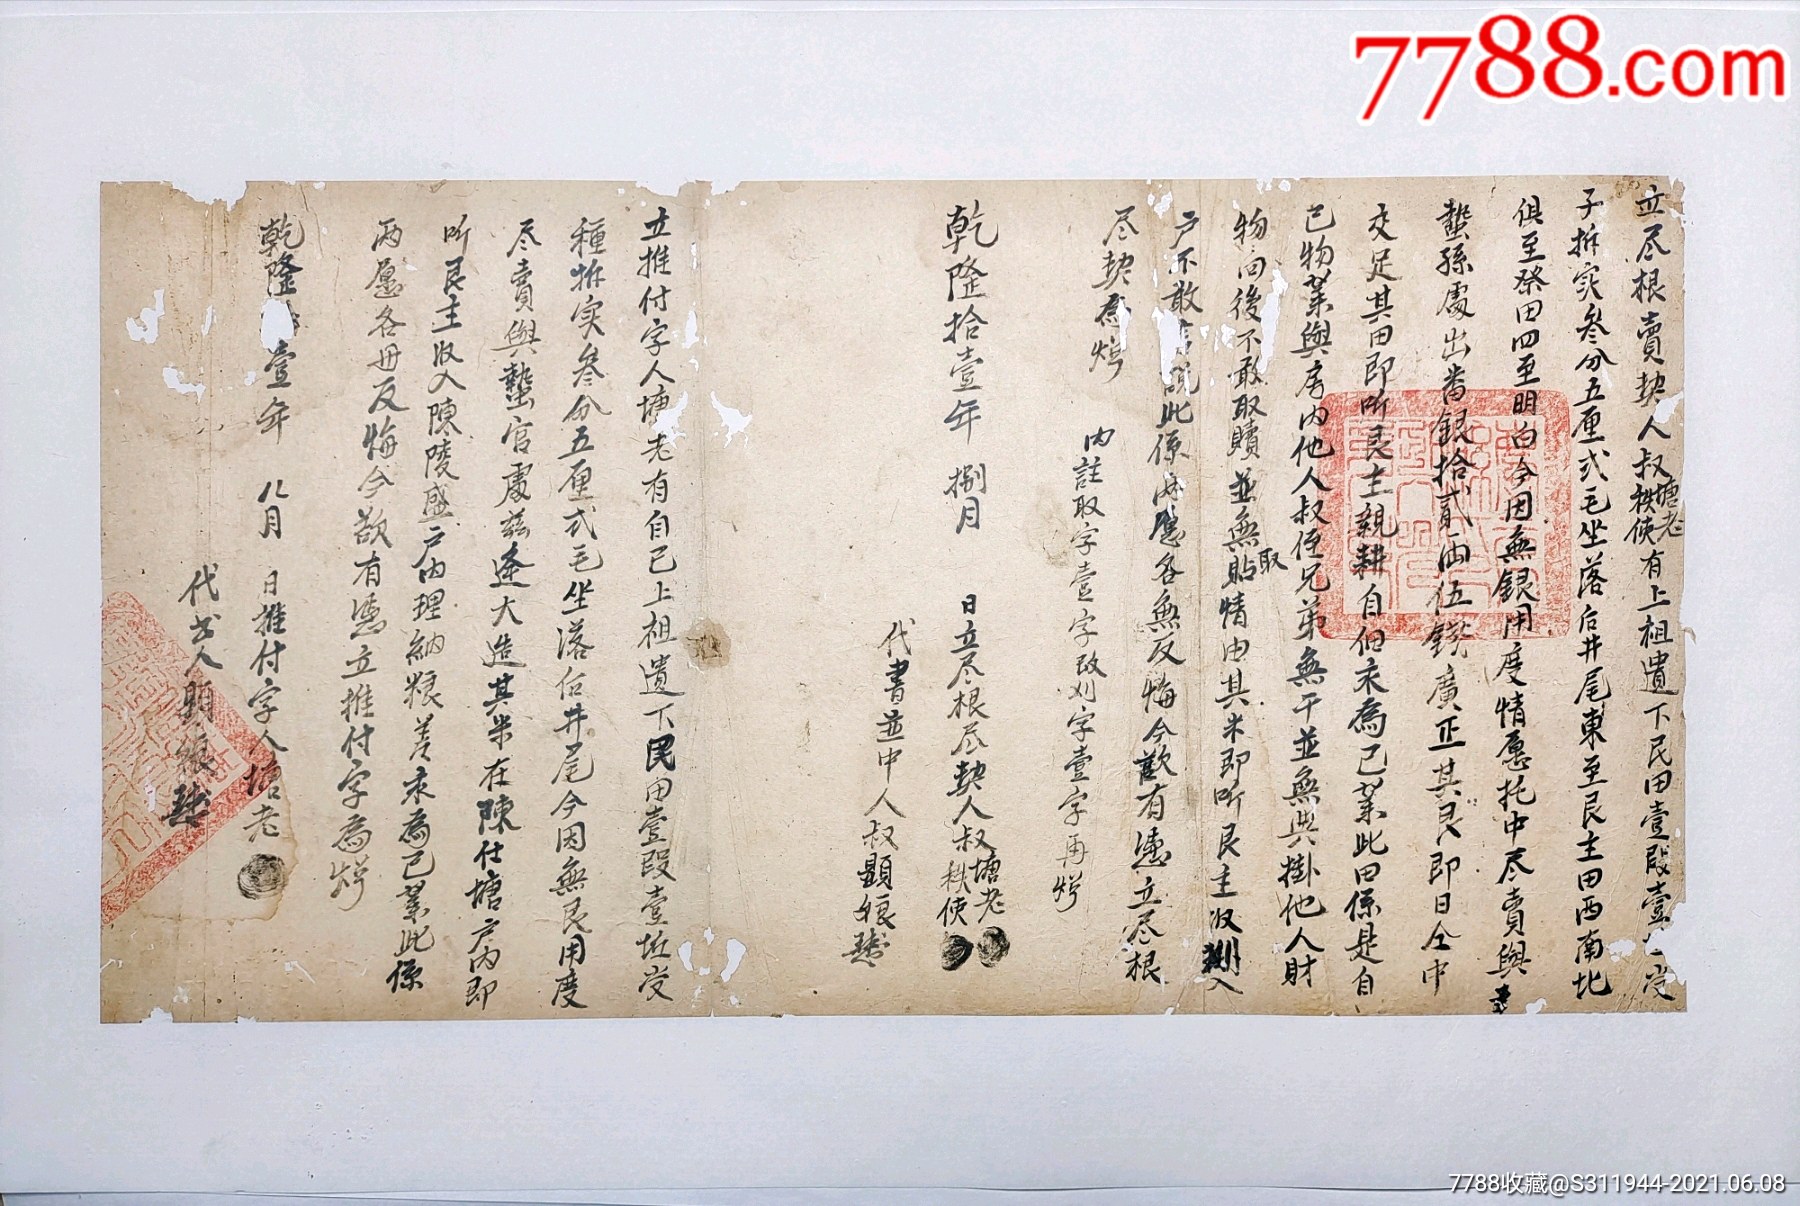 7788.com
立尽根賣契人叔塘老秩使有上祖遺下民田壹段壹
子拆实叁分五厘弍毛坐落后井尾東至艮主田西南北
俱至祭田四至明白今因無銀用度情愿托中尽賣與
蟄孫處出番銀拾貳両伍錢廣正其艮即日仝中
交足其田即听艮主親耕自佃永為己業此田係是自
己物業與房内他人叔侄兄弟無干並無典掛他人財
物向後不敢取贖並無取貼情由其米即听艮主收入
户不敢言説此係両愿各無反悔今欲有憑立尽根
尽契為炤
内註取字壹字改刈字壹字再炤
乾隆拾壹年 捌月 日立尽根尽契人叔塘老秩使
代書並中人叔顕娘
立推付字人塘老有自己上祖遺下民田壹段壹坵受
種拆实叁分五厘弍毛坐落后井尾今因無艮用度
尽賣與蟄官處兹逢大造其米在陳仕塘户内即
听艮主收入陳陵盛户内理納粮差永為己業此係
両愿各毋反悔今欲有憑立推付字為炤
乾隆 壹年 八月 日推付字人塘老
代書人顕娘
7788收藏@S311944-2021.06.08